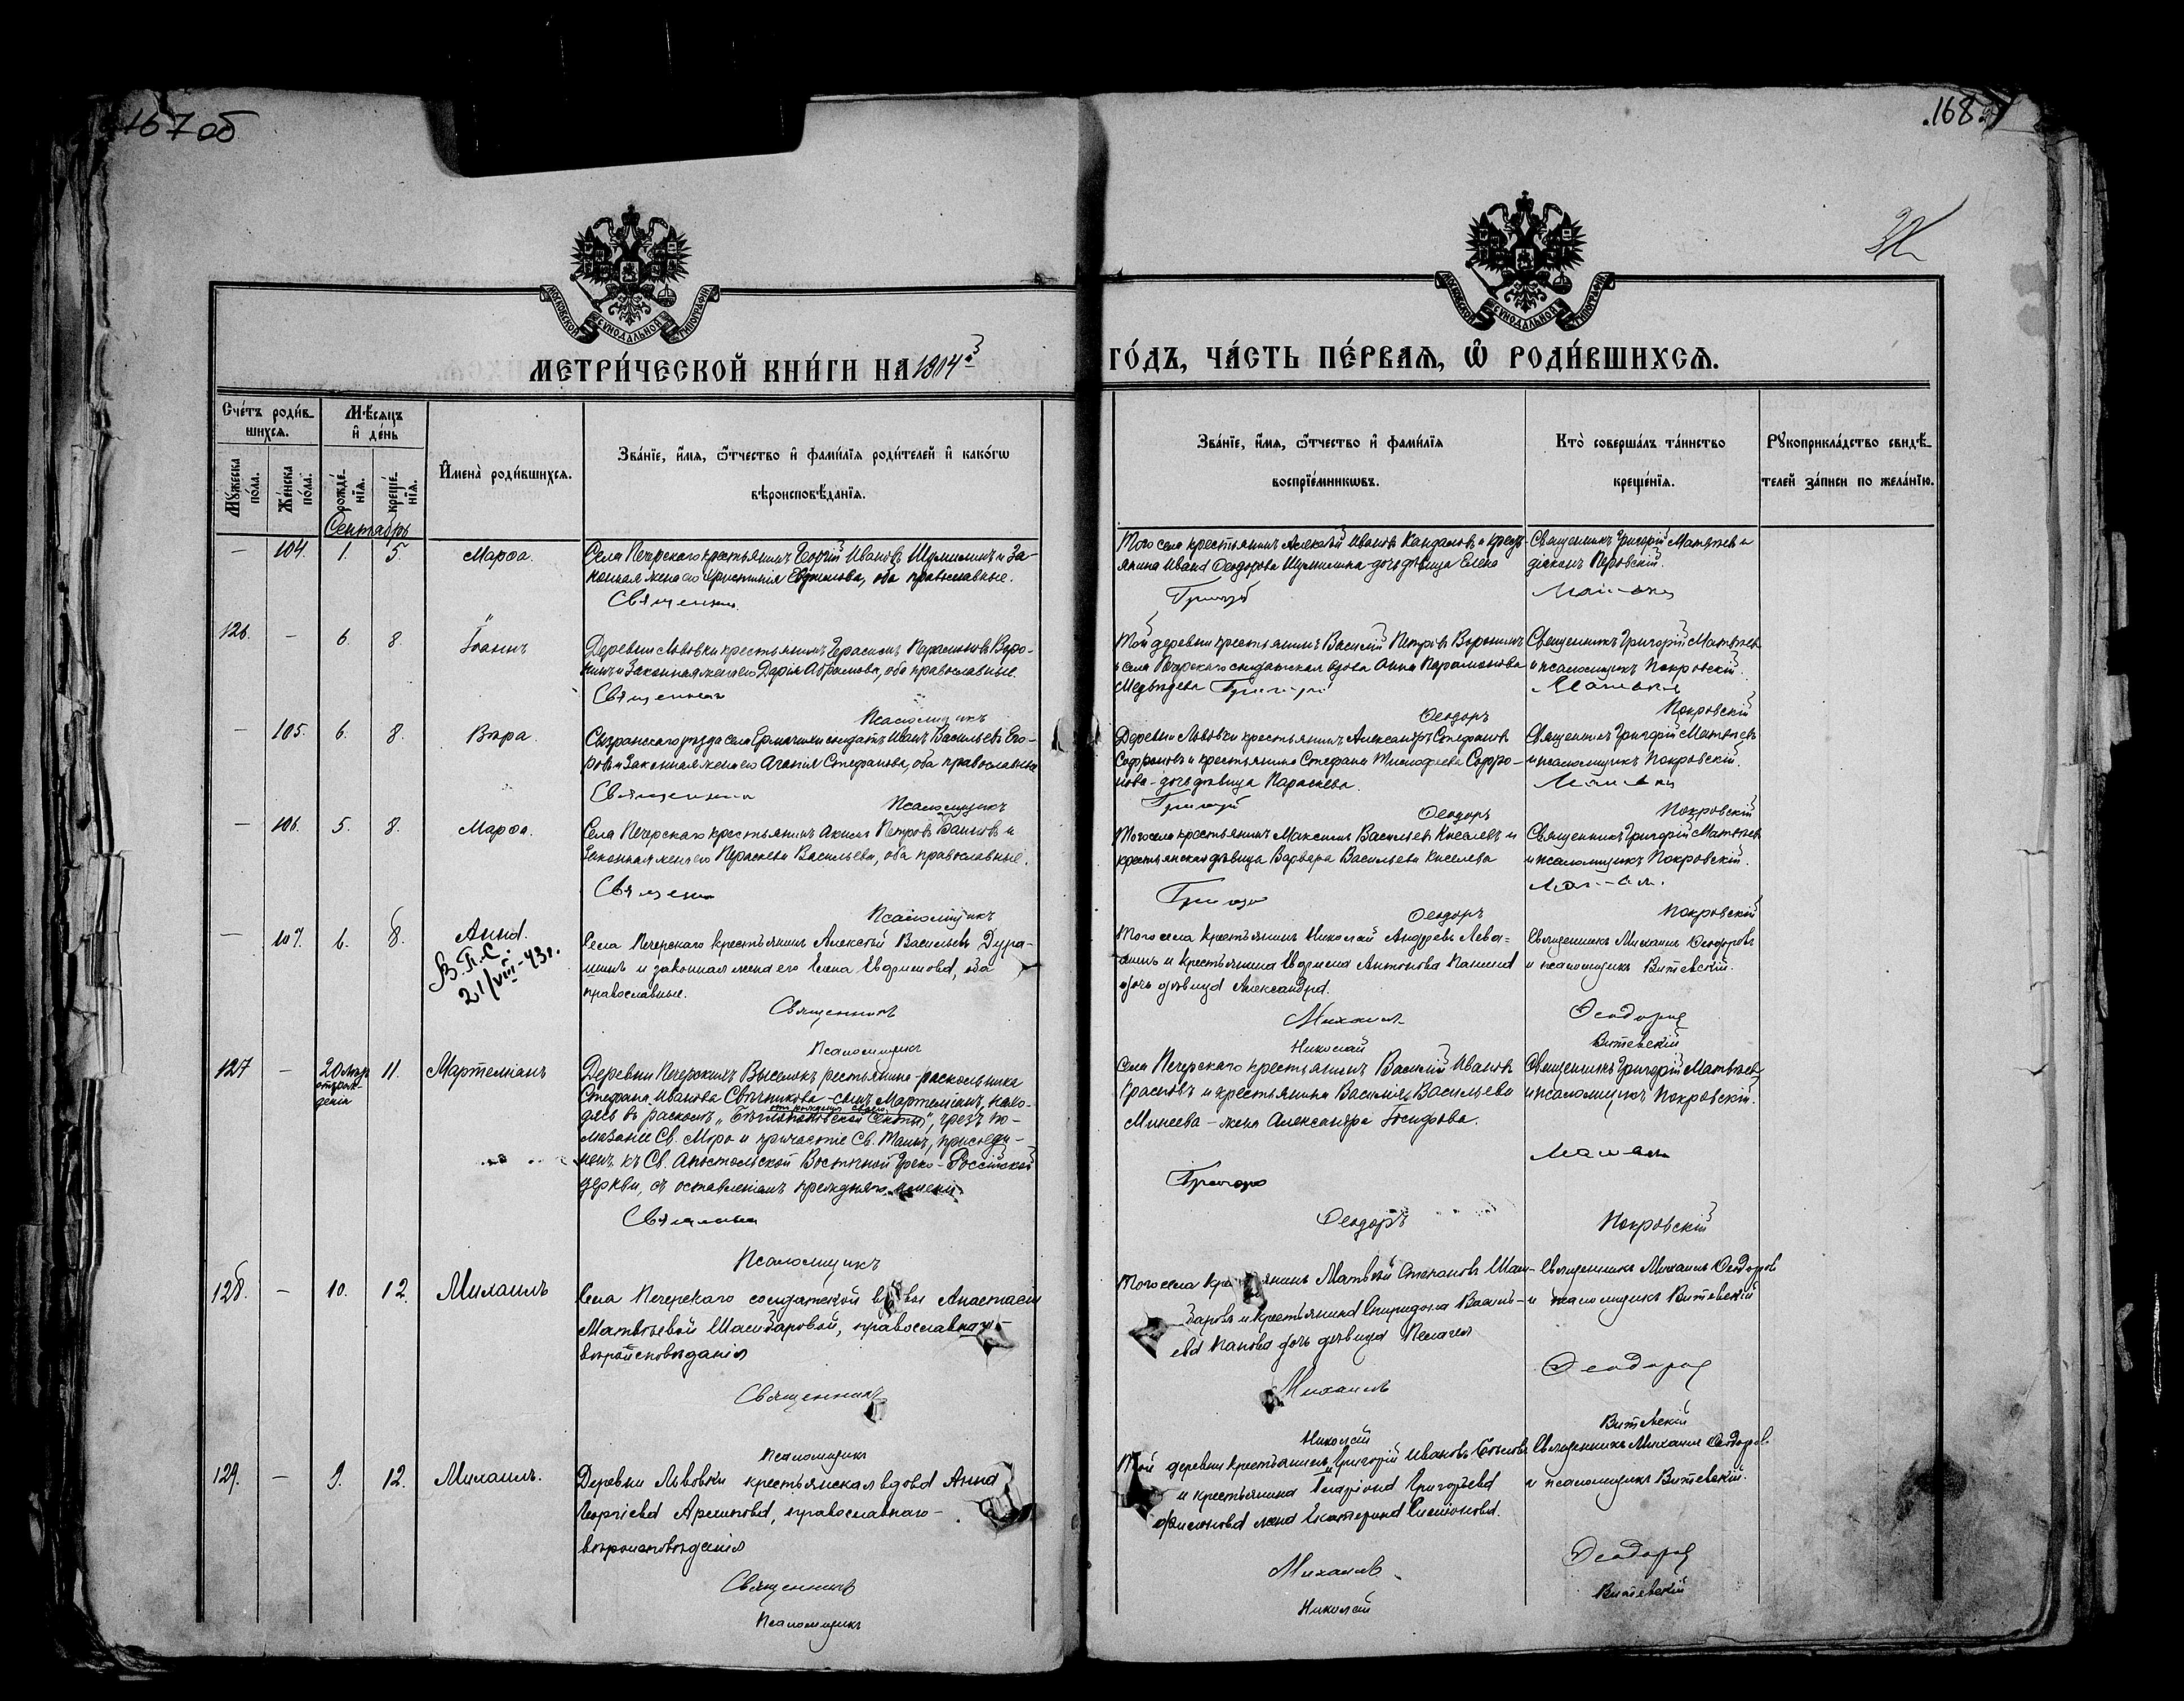 167об
168.
МОСКОВСКОЙ СѴНОДАЛЬНОЙ ТИПОГРАФІИ
МОСКОВСКОЙ СѴНОДАЛЬНОЙ ТИПОГРАФІИ
МЕТРИ́ЧЕСКОЙ КНИ́ГИ НА 1904й
ГО́ДЪ, ЧА́СТЬ ПЕ́РВАѦ, Ѡ РОДИ́ВШИХСѦ.
Сче́тъ роди́в-
шихсѧ.
Мѣ́сѧцъ
и де́нь
Мꙋ́жеска
по́ла.
Же́нска
по́ла.
рожде́-
нїѧ.
креще́-
нїѧ.
И҆мена̀ роди́вшихсѧ.
Зва́нїе, и҆́мѧ, ѻ҆́тчество и҆ фами́лїѧ роди́телей и҆ како́гѡ
вѣроисповѣ́данїѧ.
Зва́нїе, и҆́мѧ, ѻ҆́тчество и҆ фами́лїѧ
воспрїе́мникѡвъ.
Кто̀ соверша́лъ та́инство
креще́нїѧ.
Рꙋкоприкла́дство свидѣ́-
телей за́писи по жела́нїю.
Сентябрь
— 104. 1. 5. Марѳа.
Села Печерскаго крестьянинъ Георгій Ивановъ Шумилинъ и За-
конная жена его Христинія Евфимова, оба православные.
Священник
Того села крестьянинъ Алексѣй Ивановъ Кандаловъ и крест-
янина Ивана Ѳеодорова Шумилина дочь дѣвица Елена
Григорій
Священникъ Григорій Матвѣевъ и
діаконъ Перовскій.
126. — 6. 8. Іоаннъ
Деревни Львовки крестьянинъ Герасимъ Парамоновъ Воро-
нинъ и Законная жена его Дарія Абрамова, оба православные.
Священникъ
Псаломщикъ
Той деревни крестьянинъ Василій Петровъ Воронинъ
и села Печерскаго солдатская вдова Анна Парамонова
Медвѣдева Григорій
Ѳеодоръ
Священникъ Григорій Матвѣевъ
и псаломщикъ Покровскій.
Покровскій
— 105. 6. 8. Вѣра.
Сызранскаго уѣзда села Ермачихи солдатъ Иванъ Васильевъ Его-
ровъ и Законная жена его Агапія Стефанова, оба православные
Священник
Псаломщикъ
Деревни Львовки крестьянинъ Александръ Стефановъ
Софроновъ и крестьянина Стефана Тимофеева Софро-
нова - дочь дѣвица Параскева.
Григорій
Ѳеодоръ
Священникъ Григорій Матвѣевъ
и псаломщикъ Покровскій.
Покровскій
— 106. 5. 8. Марѳа.
Села Печерскаго крестьянинъ Акимъ Петровъ и
Законная жена его Параскева Васильева, оба православные.
Священник
Псаломщикъ
Того села крестьянинъ Максимъ Васильевъ Киселевъ и
крестьянская дѣвица Варвара Васильева Киселева
Григорій
Ѳеодоръ
Священникъ Григорій Матвѣевъ
и псаломщикъ Покровскій.
Покровскій
— 107. 6. 8. Анна.
В.П.С.
21/VIII-43г.
Села Печерскаго крестьянинъ Алексѣй Васильевъ Дура-
нинъ и законная жена его Елена Евфимова, оба
православные.
Священникъ
Псаломщикъ
Того села крестьянинъ Николай Андреевъ Лева-
шинъ и крестьянина Евфима Антонова Панина
дочь дѣвица Александра.
Михаилъ
Николай
Священникъ Михаилъ Ѳеодоровъ
и псаломщикъ Витевскій.
Ѳеодоровъ
Витевскій
127 — 20 11. Мартеміанъ
отрож-
денія
Деревни Печерскихъ Выселокъ крестьянина-раскольника
Стефана Иванова Свѣчникова - сынъ Мартеміанъ, нахо-
дясь въ расколѣ, чрезъ по-
мазаніе Св. Мѵро и причастіе Св. Таинъ, присоеди-
ненъ къ Св. Апостольской Восточной Греко-Россійской
Церкви, съ оставленіемъ прежняго имени.
Священник
Псаломщикъ
Села Печерскаго крестьянинъ Василій Ивановъ
Красновъ и крестьянина Василія Васильева
Минеева - жена Александра Іосифова.
Григорій
Ѳеодоръ
Священникъ Григорій Матвѣевъ
и псаломщикъ Покровскій.
Покровскій
128. — 10. 12. Михаилъ
Села Печерскаго солдатской вдовы Анастасіи
Матвѣевой Шандаровой, православнаго
вѣроисповѣданія
Священникъ
Псаломщикъ
Того села крестьянинъ Матвѣй Степановъ Шан-
даровъ и крестьянина Спиридона Василь-
ева Панова дочь дѣвица Пелагея
Михаилъ
Николай
Священникъ Михаилъ Ѳеодоровъ
и псаломщикъ Витевскій
Ѳеодоровъ
Витевскій
129. — 9. 12. Михаилъ.
Деревни Львовки крестьянская вдова Анна
Георгіева Архипова, православнаго
вѣроисповѣданія
Священникъ
Псаломщикъ
Той деревни крестьянинъ Григорій Ивановъ
и крестьянина Иларіона Григорьева
Филонова жена Екатерина Симіонова.
Михаилъ
Николай
Священникъ Михаилъ Ѳеодоровъ
и псаломщикъ Витевскій.
Ѳеодоровъ
Витевскій